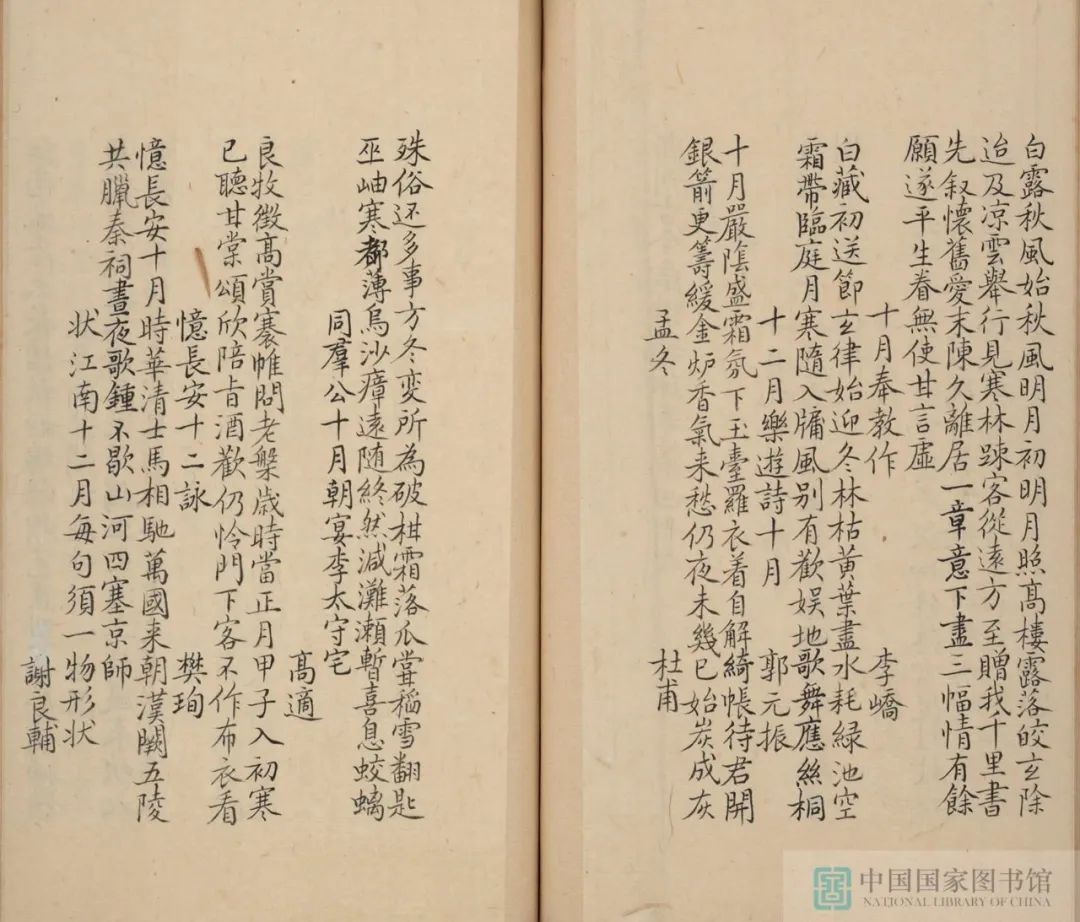 白露秋風始秋風明月初明月照高樓露落皎玄除
迨及凉雲舉行見寒林踈客從遠方至贈我千里書
先叙懷舊愛末陳久離居一章意下盡三幅情有餘
願遂平生眷無使甘言虛
十月奉教作 李嶠
白藏初送節玄律始迎冬林枯黄葉盡水耗緑池空
霜帶臨庭月寒隨入牖風别有歡娱地歌舞應絲桐
十二月樂遊詩十月 郭元振
十月嚴陰盛霜氛下玉臺羅衣着自解綺帳待君開
銀箭更籌緩金炉香氣来愁仍夜未幾已始炭成灰
孟冬 杜甫
殊俗还多事方冬变所為破柑霜落爪甞稻雪翻匙
巫岫寒都薄烏沙瘴遠随終然减灘瀬暫喜息蛟螭
同羣公十月朝宴李太守宅
高適
良牧徵高賞褰帷問老槃歳時當正月甲子入初寒
已聽甘棠頌欣陪旨酒歡仍怜門下客不作布衣看
憶長安十二詠 樊珣
憶長安十月時華清士馬相馳萬國来朝漢闕五陵
共臘秦祠晝夜歌鍾不歇山河四塞京師
状江南十二月每句須一物形状
謝良輔
中国国家图书馆
NATIONAL LIBRARY OF CHINA